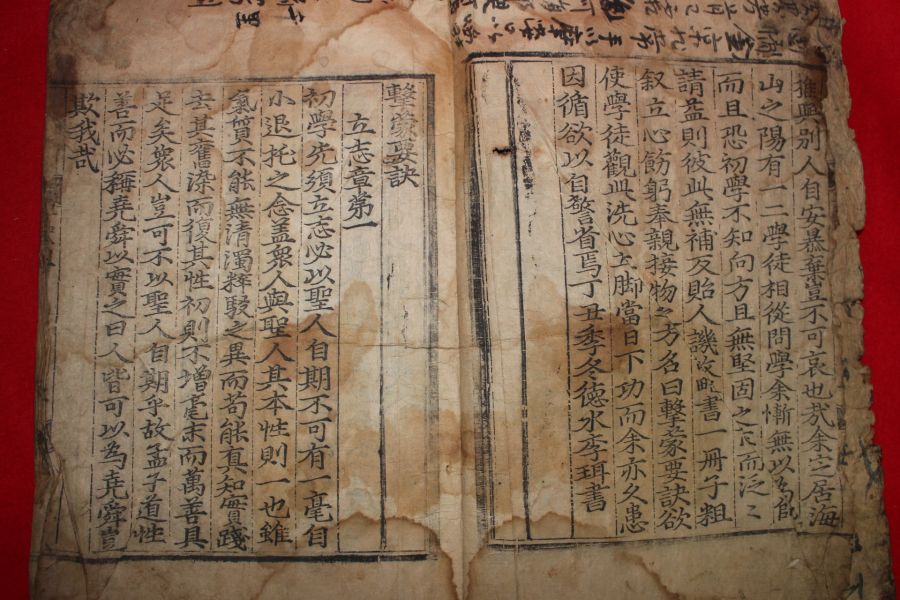 推與別人自安暴棄豈不可哀也哉余定居海
山之陽有一二學徒相從問學余慚無以為師
而且恐初學不知向方且無堅固之志而泛〻
請益則彼此無補反貽人譏故略書一冊子粗
叙立心飭躬奉親接物之方名曰擊蒙要訣欲
使學徒觀此洗心立脚當日下功而余亦久患
因循欲以自警省焉丁丑季冬德水李珥書
擊蒙要訣
立志章第一
初學先須立志必以聖人自期不可有一毫自
小退托之念盖衆人與聖人其本性則一也雖
氣質不能無清濁粹駁之異而苟能真知實踐
去其舊染而復其性初則不增毫末而萬善具
足矣衆人豈可不以聖人自期乎故孟子道性
善而必稱堯舜以實之曰人皆可以為堯舜豈
欺我哉